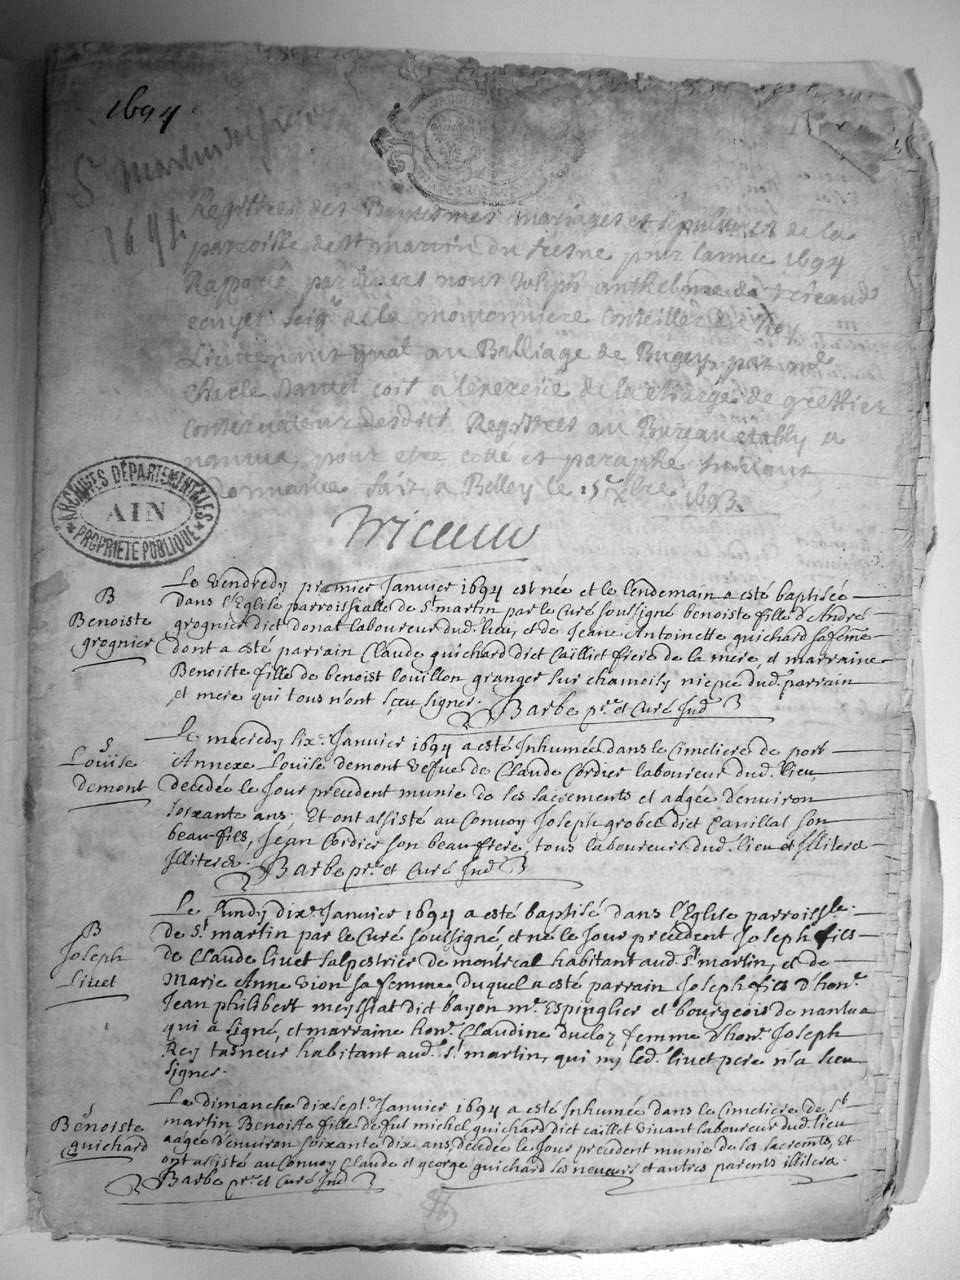 1694
St Martin du fresne
1694
Registres des Baptesmes mariages et sepultures de la
paroisse de St martin du fresne pour l'année 1694
Rapporté par devers nous Joseph anthelme de
ecuyer seigr de la montonniere Conseiller du Roy
Lieutenant gnal au Balliage de Bugey par me
Charle Daniel coit a l'exercise de la charge de greffier
Conservateur desdict Registres au Bureau etably a
nantua, pour etre coté et paraphé suivant
l'ordonnance fait a Belley le 15e xbre 1693
ARCHIVES DÉPARTEMENTALES
AIN
PROPRIETE PUBLIQUE
B
Benoiste
grognier
Le vendredy premier Janvier 1694 est née et le lendemain a esté baptisée
dans l'Eglise parroissialle de St martin par le Curé soussigné benoiste fille d'André
grognier dict donat laboureur dud. lieu, et de Jeane Antoinette guichard sa féme
dont a esté parrain Claude guichard dict Cailliet frere de la mere, et marraine
Benoiste fille de benoist louillon granger sur chamoisy niepce dud. parrain
et mere qui tous n'ont sçeu signer. Barbe ptre et Curé Jnd
S
Louise
demont
Le mecredy six. Janvier 1694 a esté Inhumée dans le Cimetiere de port
Annexe Louise demont vefue de Claude Cordier laboureur dud. lieu,
decedée le Jour precedent munie de ses sacrements et adgée d'environ
soixante ans. Et ont assisté au Convoy Joseph grobet dict Canillat son
beau-fils, Jean Cordier son beau frere, tous laboureurs dud. lieu et Illitera
Illiterés. Barbe ptre et Curé Jnd
B
Joseph
Livet
Le Lundy dixe Janvier 1694 a esté baptisé dans l'Eglise parroissle
de St martin par le Curé soussigné et né le Jour precedent Joseph fils
de Claude livet salpestrier de montreal habitant aud. St martin, et de
Marie Anne vion sa femme duquel a esté parrain Joseph fils d'hone
Jean philibert meyssiat dict bayon me Espinglier et bourgeois de nantua
qui a signé, et marraine hone Claudine ducloz femme d'hone Joseph
Rey tasneur habitant aud. St martin, qui ny led. livet pere n'a sceu
signer.
S
Benoiste
guichard
Le dimanche dixsept. Janvier 1694 a esté Inhumée dans le Cimetiere de St
martin Benoiste fille de fut michel guichard dict caillet vivant laboureur dud. lieu
aagée d'environ soixante dix ans, decedée le Jour precedent munie de ses sacremts, Et
ont assisté au Convoy Claude et george guichard ses neveurs et autres parents illitera.
Barbe ptre et Curé Jnd